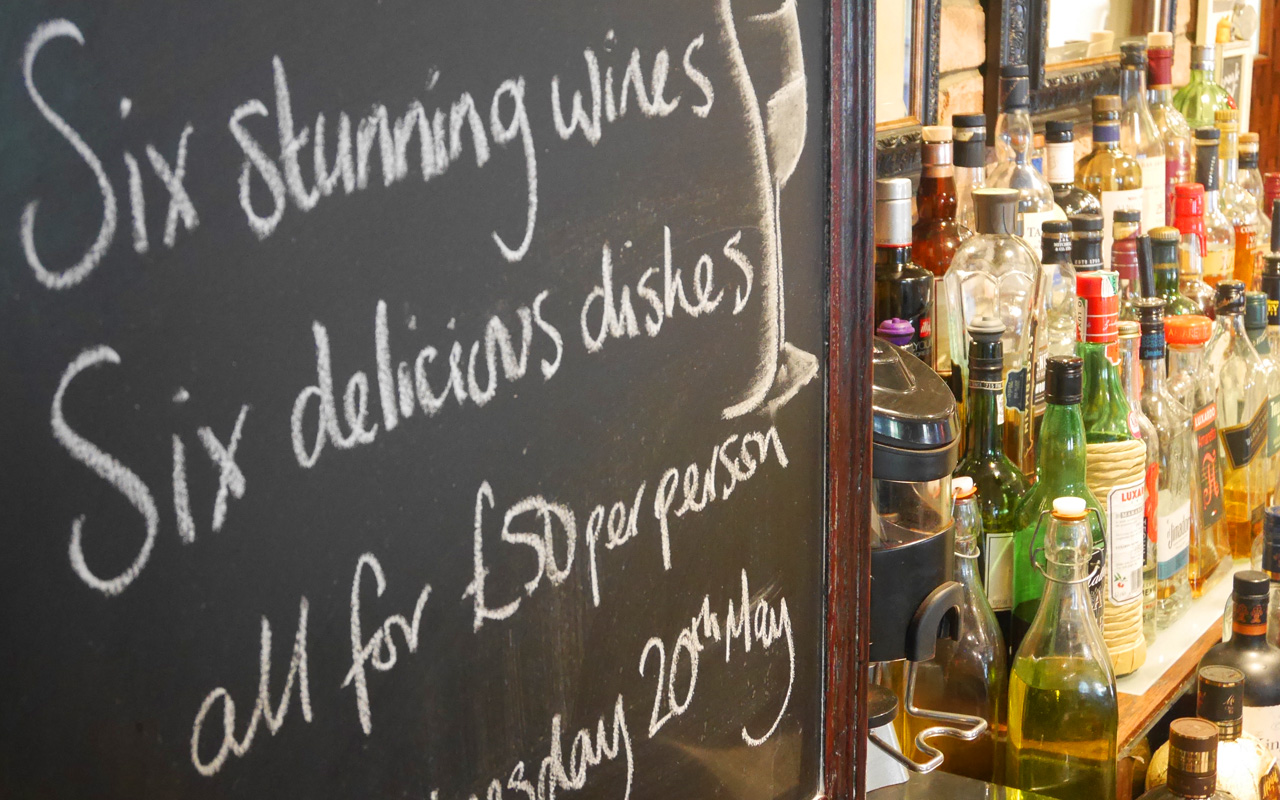 Six stunning wines
Six delicious dishes
all for £50 per person
20th May
LUXARDO